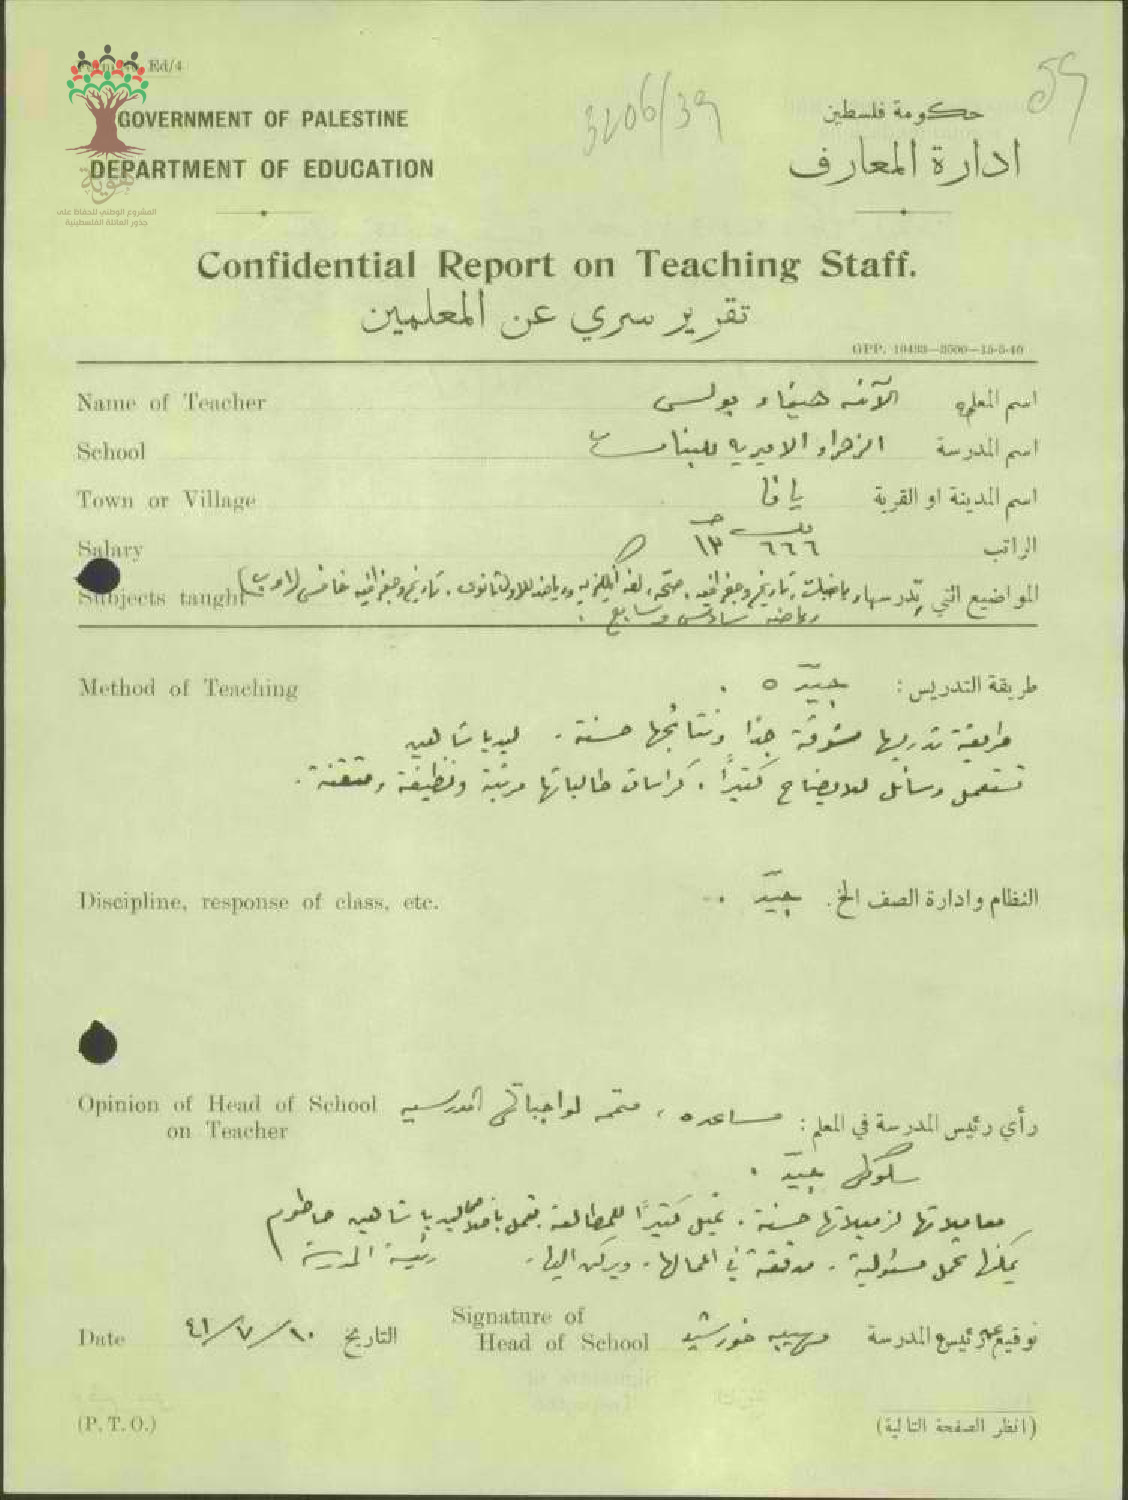 Ed/4
GOVERNMENT OF PALESTINE
DEPARTMENT OF EDUCATION
3206/39
حكومة فلسطين
ادارة المعارف
هوية
المشروع الوطني للحفاظ على
جذور العائلة الفلسطينية
Confidential Report on Teaching Staff.
تقرير سري عن المعلمين
GPP. 10433—3500—15-5-40
Name of Teacher الآنسه هيفاء بولس اسم المعلم
School الزهراء الاميريه للبنات اسم المدرسة
Town or Village يافا اسم المدينة او القرية
Salary ٦٦٦ ١٣ الراتب
Subjects taught المواضيع التي تدرسها
رياضه سادس وسابع
Method of Teaching طريقة التدريس: جيّده.
طريقة تدريسها مشوقة جدًا ونتائجها حسنة. ليديا شاهين
تستعمل وسائل للايضاح كثيرًا. كراسات طالباتها مرتبة ونظيفة ومتقنة.
Discipline, response of class, etc. النظام وادارة الصف الخ. جيّد
Opinion of Head of School on Teacher رأي رئيس المدرسة في المعلم: مساعده، متممه لواجباتها المدرسيه
سلوكها جيّد.
معاملاتها لزميلاتها حسنة. تميل كثيرًا للمطالعة ليديا شاهين حاطوم
يمكنها تحمل مسئولية. مدققة في اعمالها. ويركن اليها. رئيسة المدرسة
Date ١٠/٧/٤١ التاريخ Signature of Head of School مهيبه خورشيد توقيع رئيس المدرسة
(P. T. O.) (انظر الصفحة التالية)